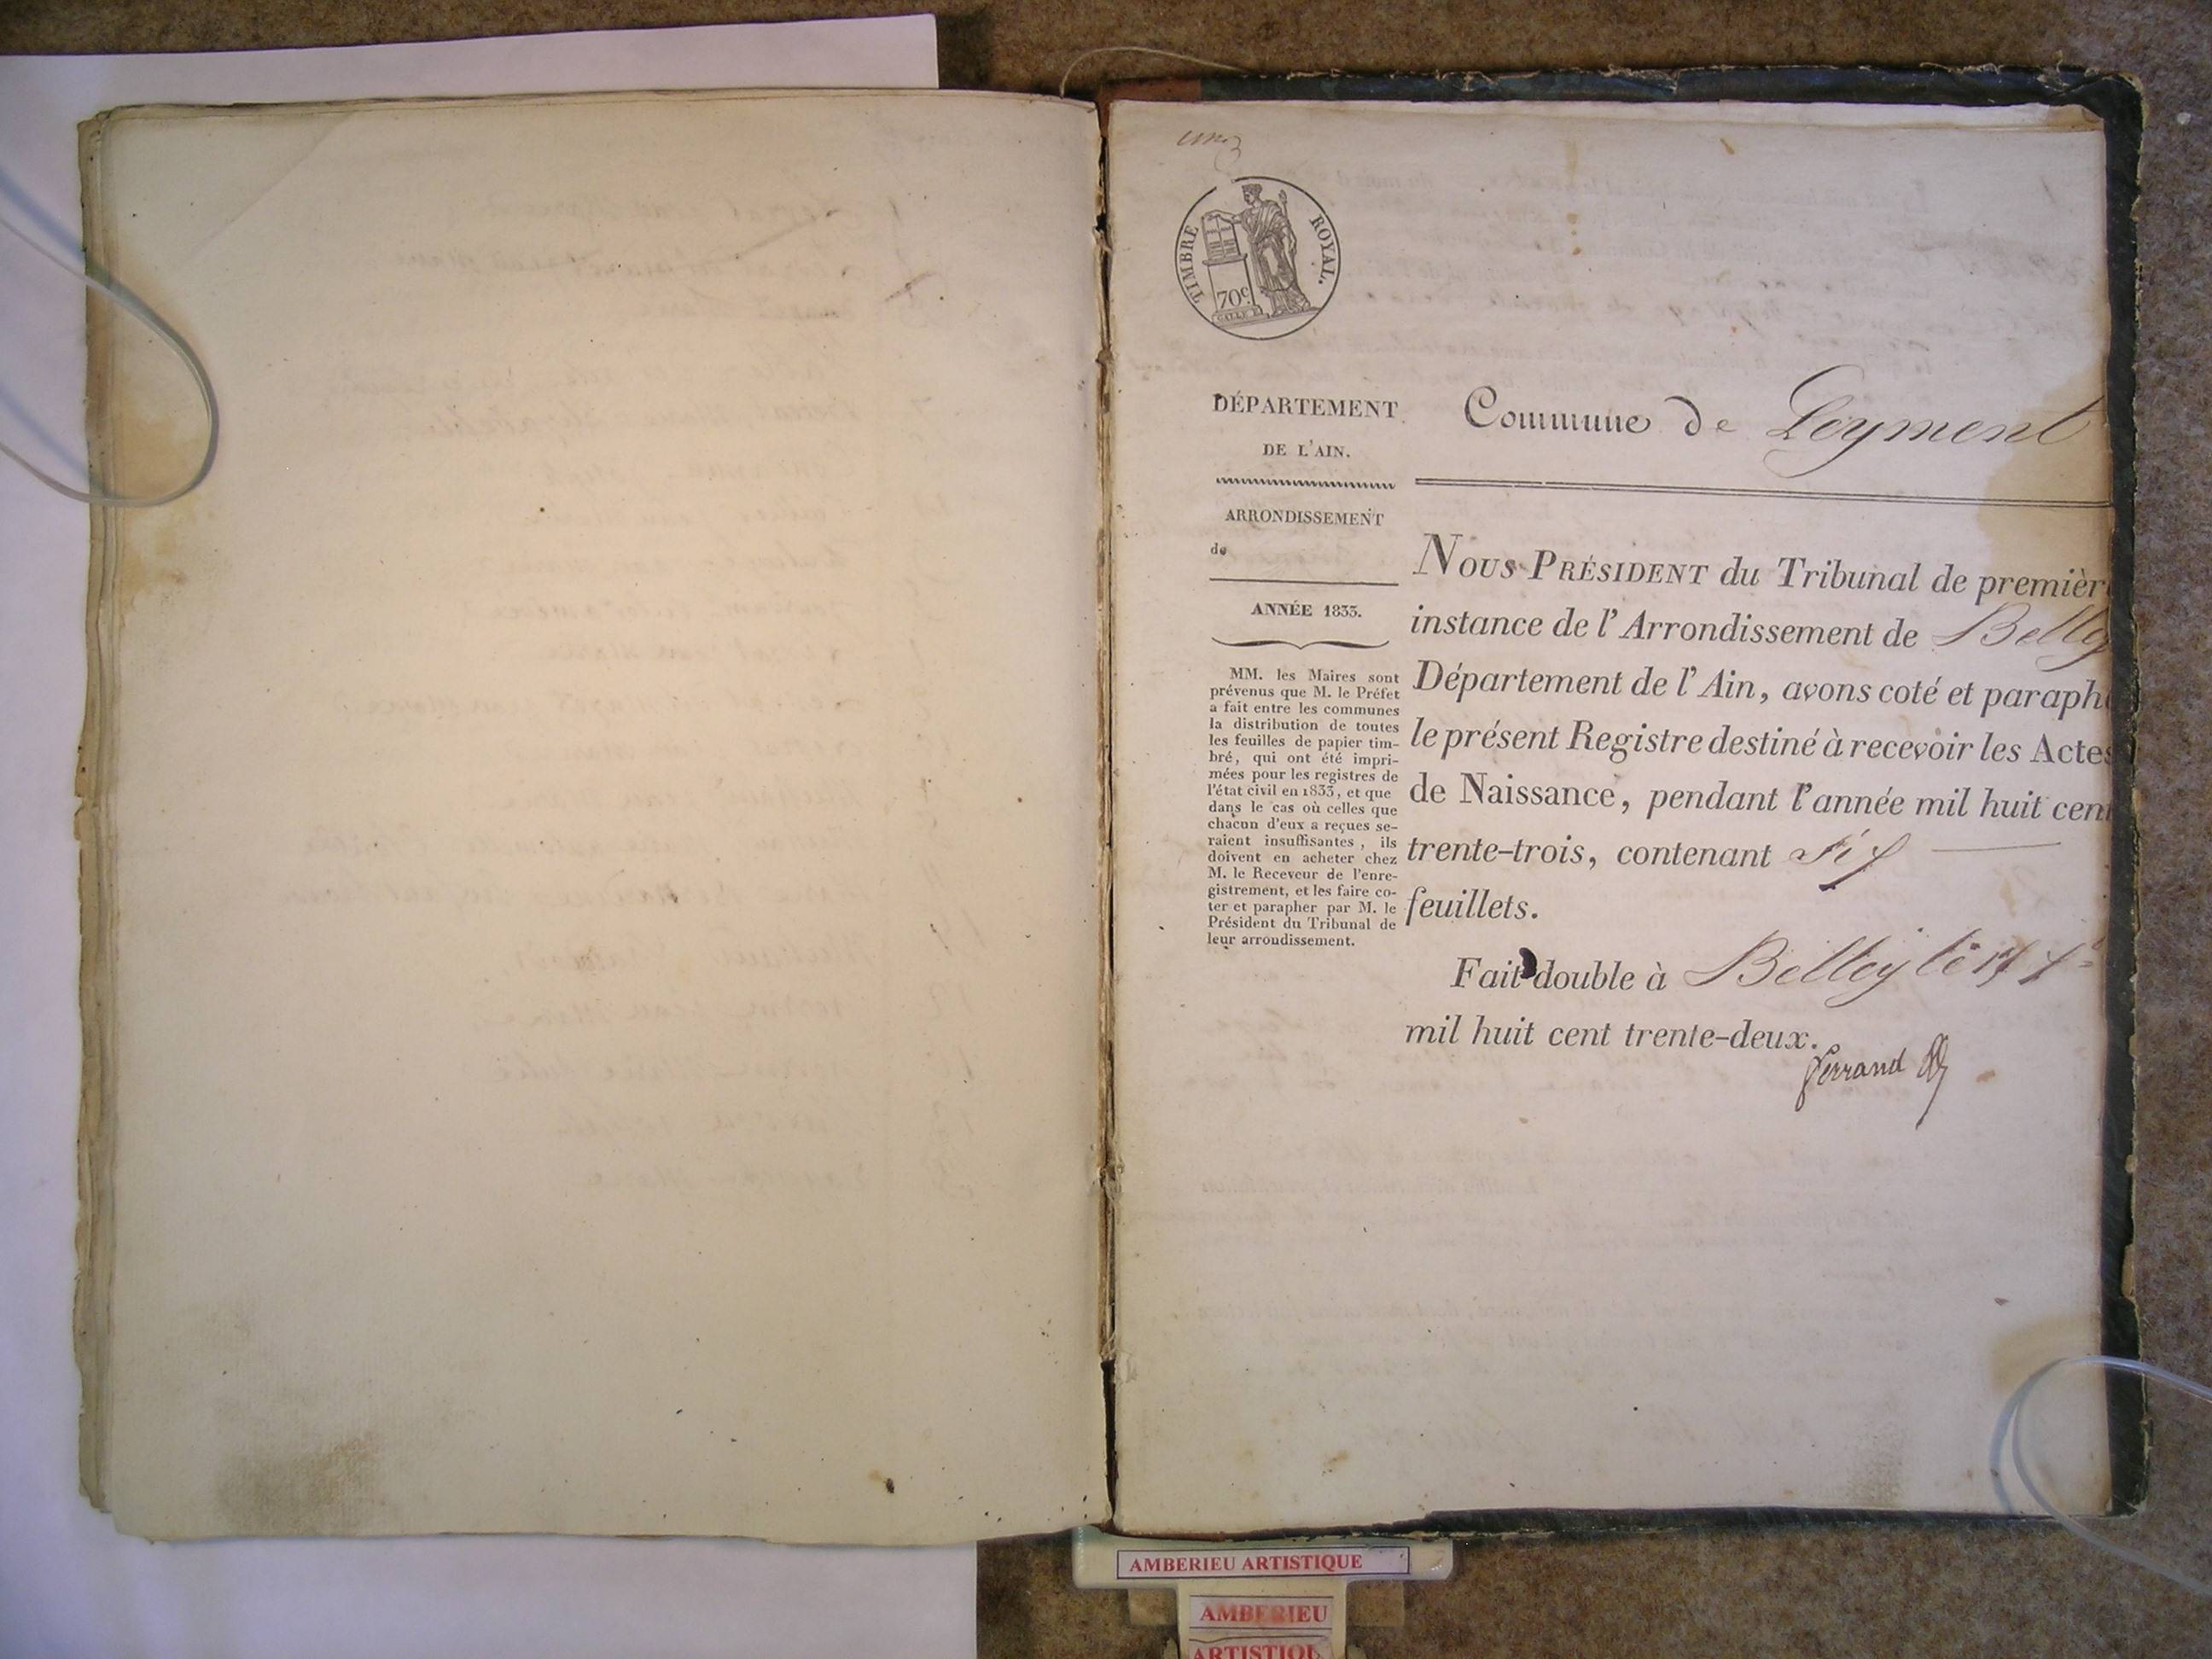 TIMBRE ROYAL.
70c.
DÉPARTEMENT
DE L'AIN.
ARRONDISSEMENT
de
ANNÉE 1833.
MM. les Maires sont
prévenus que M. le Préfet
a fait entre les communes
la distribution de toutes
les feuilles de papier tim-
bré, qui ont été impri-
mées pour les registres de
l'état civil en 1833, et que
dans le cas où celles que
chacun d'eux a reçues se-
raient insuffisantes, ils
doivent en acheter chez
M. le Receveur de l'enre-
gistrement, et les faire co-
ter et parapher par M. le
Président du Tribunal de
leur arrondissement.
Commune de Leyment
NOUS PRÉSIDENT du Tribunal de premièr
instance de l'Arrondissement de Belley
Département de l'Ain, avons coté et paraph
le présent Registre destiné à recevoir les Actes
de Naissance, pendant l'année mil huit cen
trente-trois, contenant six
feuillets.
Fait double à Belley le
mil huit cent trente-deux.
ferrand
AMBERIEU ARTISTIQUE
AMBERIEU
ARTISTIQU